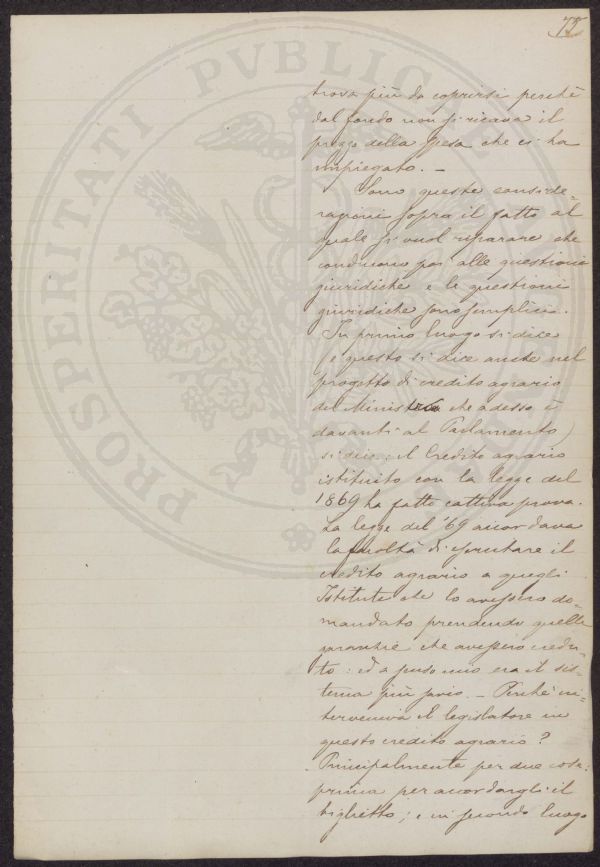 75
PROSPERITATI PVBLICAE AVGENDAE
trova più da coprirsi perchè
dal fondo non si ricava il
prezzo della spesa che ci ha
impiegato. –
Sono queste conside-
razioni sopra il fatto al
quale si vuol riparare che
conducono poi alle questioni
giuridiche e le questioni
giuridiche sono semplici.
In primo luogo si dice
(e questo si dice anche nel
progetto di credito agrario
del Ministro che adesso è
davanti al Parlamento)
si dice: il Credito agrario
istituito con la legge del
1869 ha fatto cattiva prova.
La legge del '69 accordava
la facoltà di esercitare il
credito agrario a quegli
Istituti che lo avessero do-
mandato prendendo quelle
garanzie che avessero credu-
to: ed a senso mio era il sis-
tema più savio. – Perchè in-
terveniva il legislatore in
questo credito agrario?
Principalmente per due cose:
prima per accordargli il
biglietto; e in secondo luogo